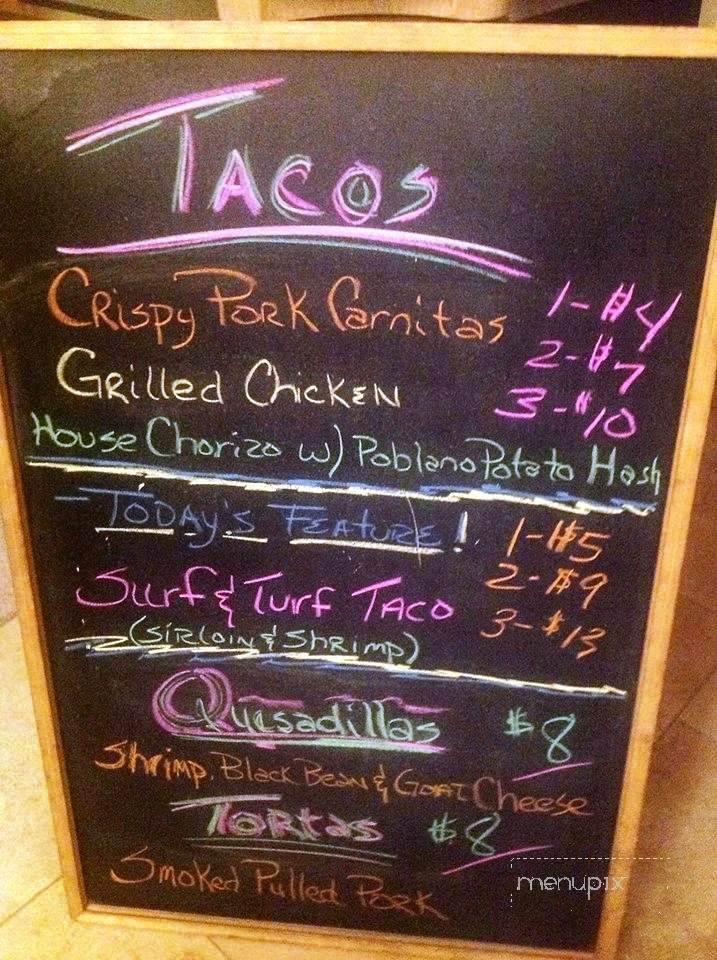 TACOS
CRispy PORK Carnitas 1-$4
GRilled ChickEN 2-$7
3-$10
House Chorizo w/ Poblano Potato Hash
-TODAy's FEATURE! 1-$5
Surf & Turf TACO 2-$9
(SiRLOIN & ShRimp) 3-$13
Quesadillas $8
Shrimp, Black BEAN & GOAT Cheese
TORtas $8
Smoked Pulled PORK
menupix